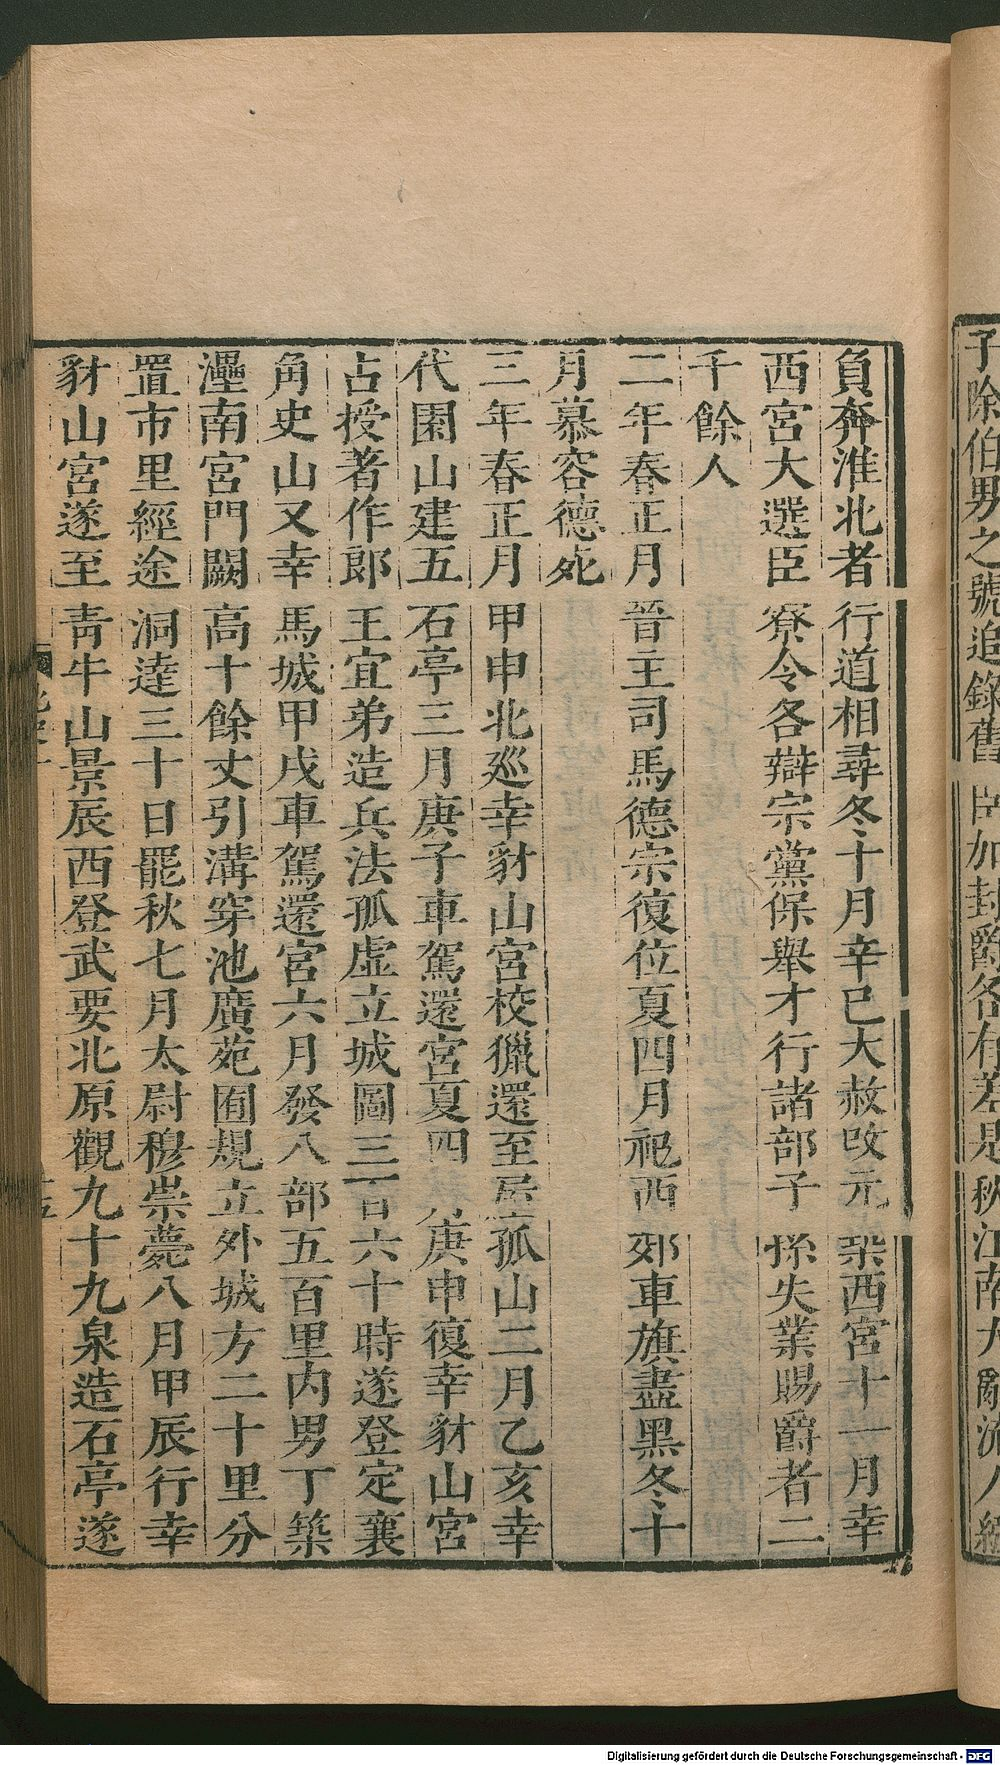 子除伯男之號追錄舊臣加封爵各有差是秋江南大亂流人繈
負奔淮北者行道相尋冬十月辛巳大赦改元築西宮十一月幸
西宮大選臣寮令各辯宗黨保舉才行諸部子孫失業賜爵者二
千餘人
二年春正月晉主司馬德宗復位夏四月祀西郊車旗盡黑冬十
月慕容德死
三年春正月甲申北巡幸豺山宮校獵還至屋孤山二月乙亥幸
代園山建五石亭三月庚子車駕還宮夏四月庚申復幸豺山宮
占授著作郎王宜弟造兵法孤虛立城圖三百六十時遂登定襄
角史山又幸馬城甲戌車駕還宮六月發八部五百里内男丁築
灅南宮門闕高十餘丈引溝穿池廣苑囿規立外城方二十里分
置市里經途洞達三十日罷秋七月太尉穆崇薨八月甲辰行幸
豺山宮遂至青牛山景辰西登武要北原觀九十九泉造石亭遂
Digitalisierung gefördert durch die Deutsche Forschungsgemeinschaft - DFG